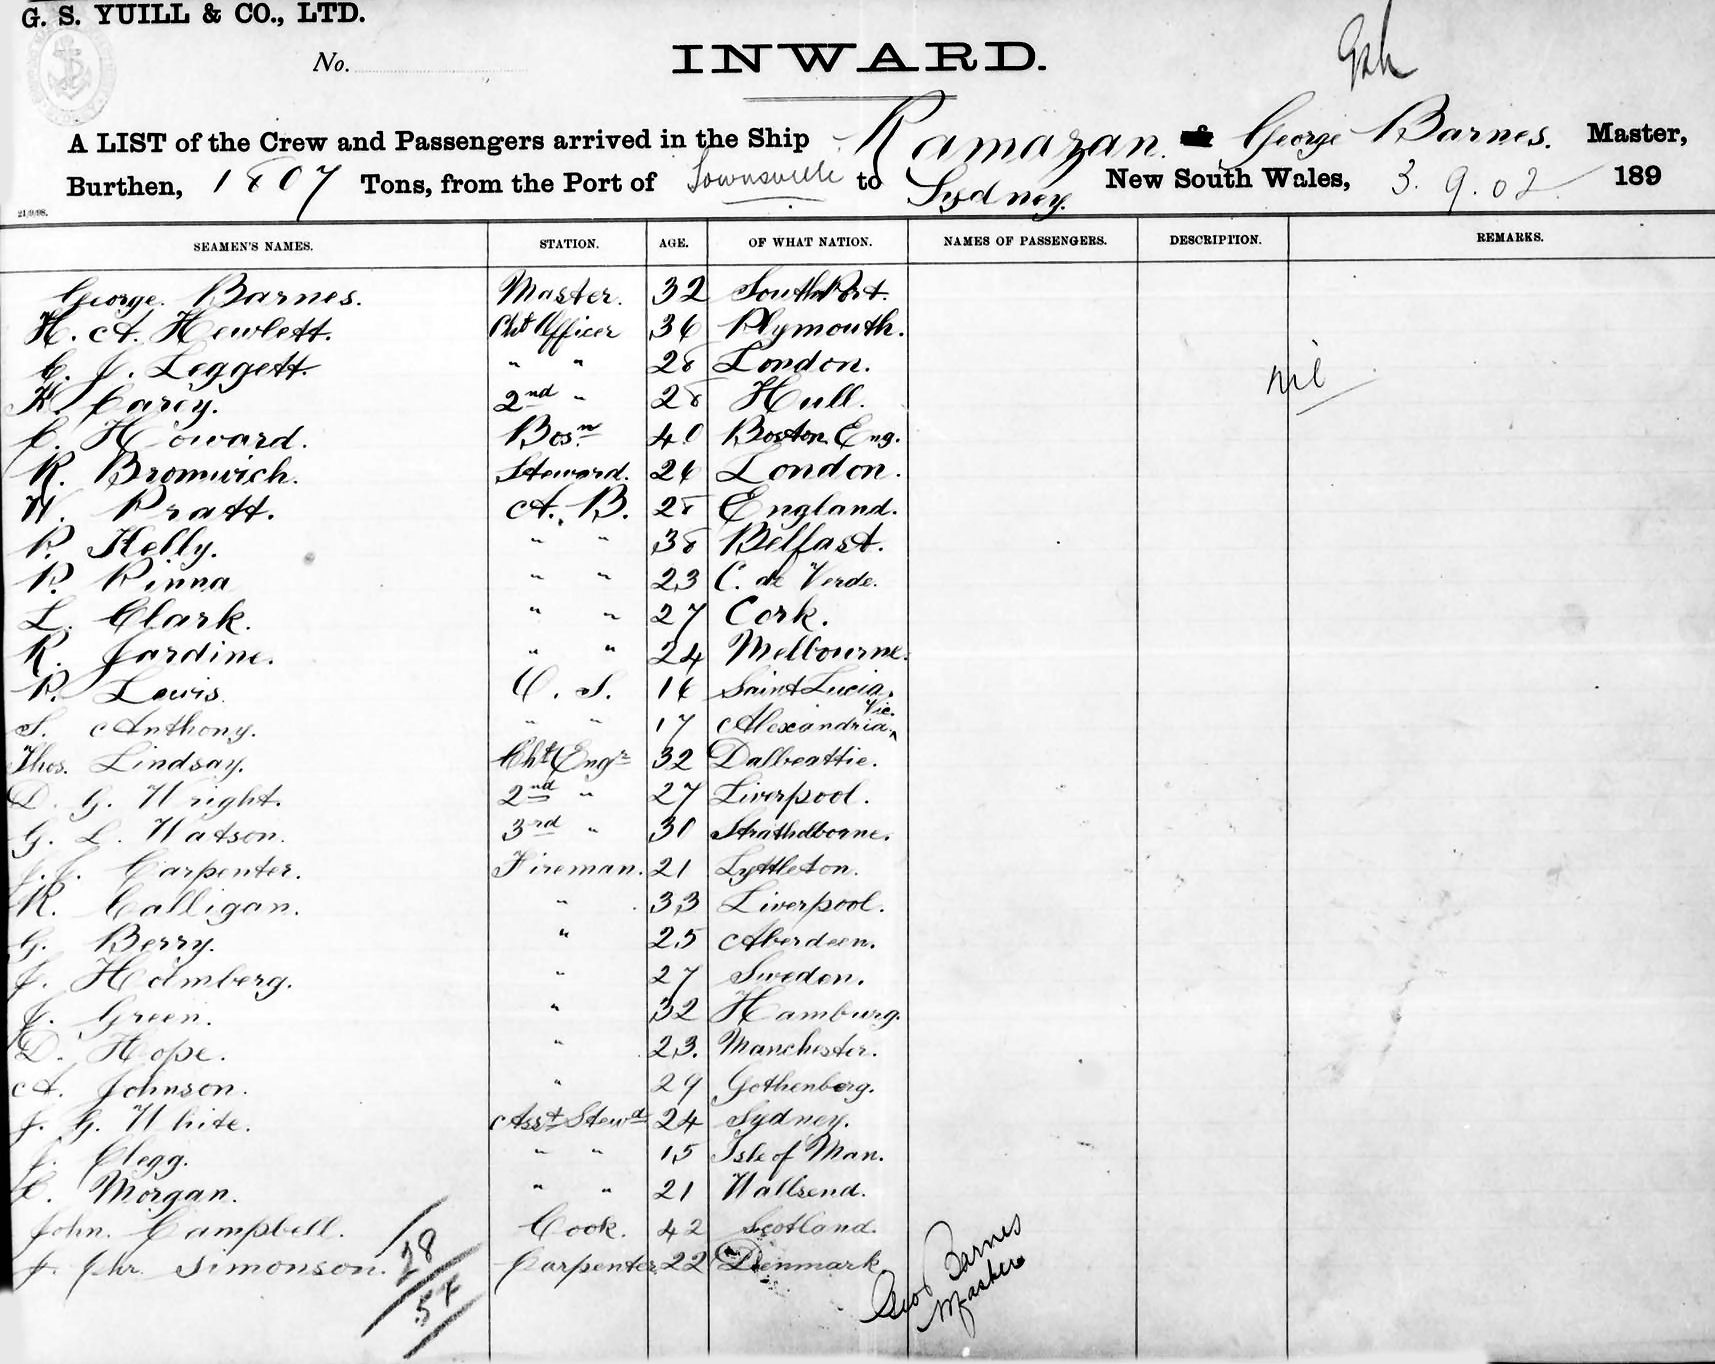 G. S. YUILL & CO., LTD.
No.
INWARD.
A LIST of the Crew and Passengers arrived in the Ship Ramazan George Barnes. Master,
Burthen, 1807 Tons, from the Port of Townsville to Sydney. New South Wales, 3. 9. 02 189
21/9/98.
SEAMEN'S NAMES. STATION. AGE. OF WHAT NATION. NAMES OF PASSENGERS. DESCRIPTION. REMARKS.
George. Barnes. Master. 32 SouthPort.
H. A. Hewlett. Cht Officer 36 Plymouth.
C. J. Leggett. " " 28 London.
nil
K. Carey. 2nd " 28 Hull.
C. Howard. Bosn 40 Boston Eng.
R. Bromwich. Steward. 26 London.
W. Pratt. A. B. 28 England.
P. Kelly. " " 38 Belfast.
P. Pinna " " 23 C. de Verde.
L. Clark. " " 27 Cork.
R. Jardine. " " 24 Melbourne.
P. Lewis. O. S. 16 Saint Lucia.
S. Anthony. " " 17 Alexandria, Vic.
Thos. Lindsay. Cht Engr 32 Dalbeattie.
D. G. Wright. 2nd " 27 Liverpool.
G. L. Watson. 3rd " 30 Strathelborne.
Carpenter. Fireman. 21 Lyttleton.
R. Calligan. " 33 Liverpool.
G. Berry. " 25 Aberdeen.
J. Holmberg. " 27 Sweden.
J. Green. " 32 Hamburg.
D. Hope. " 23. Manchester.
A. Johnson. " 29 Gothenberg.
J. G. White. Asst Stewd 24 Sydney.
J. Clegg. " " 15 Isle of Man.
C. Morgan. " " 21 Wallsend.
John. Campbell. Cook. 42 Scotland.
J. Chr. Simonson. Carpenter 22 Denmark
28
54
Geo Barnes
Master